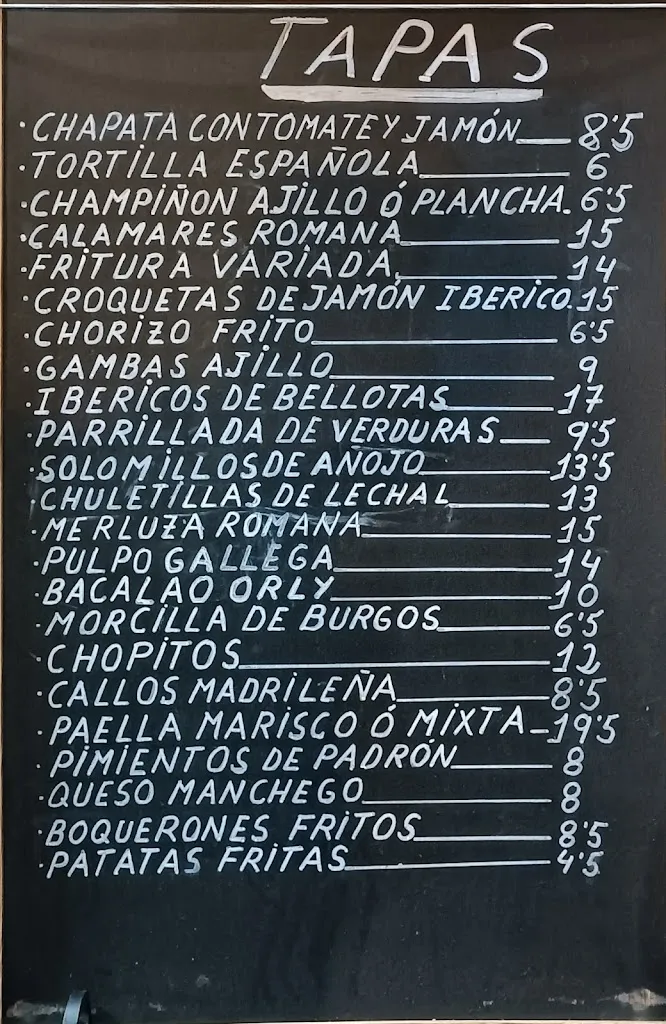 TAPAS
· CHAPATA CON TOMATE Y JAMÓN 8'5
· TORTILLA ESPAÑOLA 6
· CHAMPIÑON AJILLO Ó PLANCHA. 6'5
· CALAMARES ROMANA 15
· FRITURA VARIADA 14
· CROQUETAS DE JAMÓN IBERICO 15
· CHORIZO FRITO 6'5
· GAMBAS AJILLO 9
· IBERICOS DE BELLOTAS 17
· PARRILLADA DE VERDURAS 9'5
· SOLOMILLOS DE AÑOJO 13'5
· CHULETILLAS DE LECHAL 13
· MERLUZA ROMANA 15
· PULPO GALLEGA 14
· BACALAO ORLY 10
· MORCILLA DE BURGOS 6'5
· CHOPITOS 12
· CALLOS MADRILEÑA 8'5
· PAELLA MARISCO Ó MIXTA 19'5
· PIMIENTOS DE PADRÓN 8
· QUESO MANCHEGO 8
· BOQUERONES FRITOS 8'5
· PATATAS FRITAS 4'5